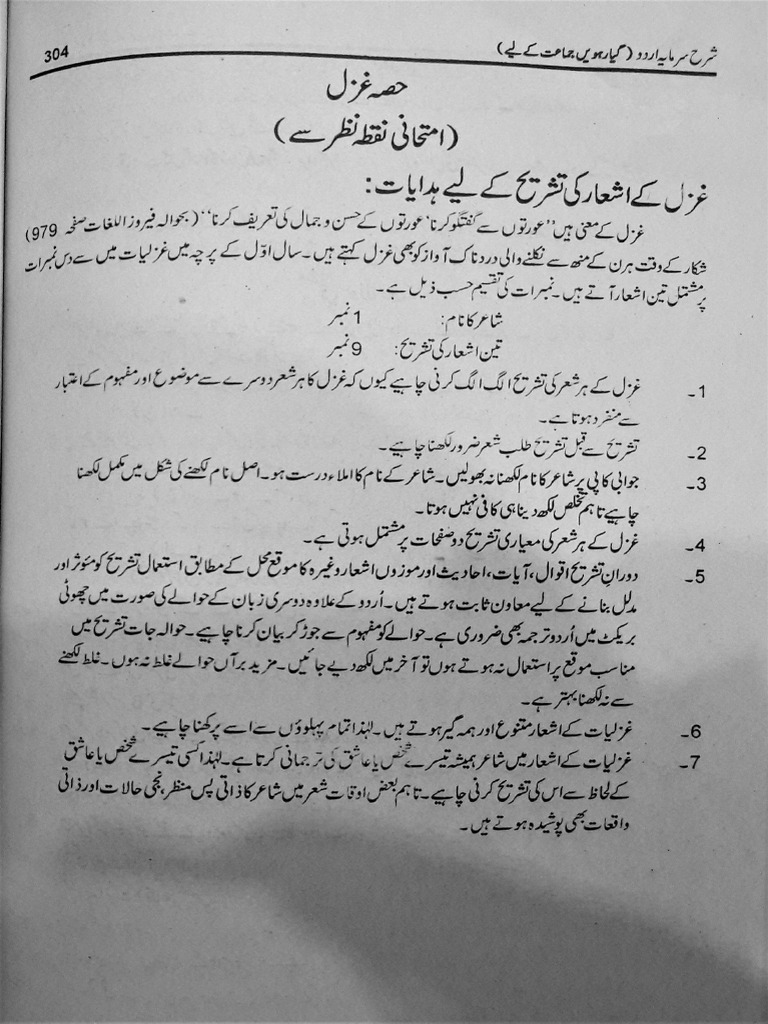 شرح سرمایہ اردو (گیارہویں جماعت کے لیے)
304
حصہ غزل
(امتحانی نقطہ نظر سے)
غزل کے اشعار کی تشریح کے لیے ہدایات:
غزل کے معنی ہیں ''عورتوں سے گفتگو کرنا' عورتوں کے حسن و جمال کی تعریف کرنا'' (بحوالہ فیروز اللغات صفحہ 979)
شکار کے وقت ہرن کے منھ سے نکلنے والی دردناک آواز کو بھی غزل کہتے ہیں۔ سال اوّل کے پرچہ میں غزلیات میں سے دس نمبرات
پر مشتمل تین اشعار آتے ہیں۔ نمبرات کی تقسیم حسب ذیل ہے۔
شاعر کا نام: 1 نمبر
تین اشعار کی تشریح: 9 نمبر
1۔ غزل کے ہر شعر کی تشریح الگ الگ کرنی چاہیے کیوں کہ غزل کا ہر شعر دوسرے سے موضوع اور مفہوم کے اعتبار
سے منفرد ہوتا ہے۔
2۔ تشریح سے قبل تشریح طلب شعر ضرور لکھنا چاہیے۔
3۔ جوابی کاپی پر شاعر کا نام لکھنا نہ بھولیں۔ شاعر کے نام کا املاء درست ہو۔ اصل نام لکھنے کی شکل میں مکمل لکھنا
چاہیے تاہم تخلص لکھ دینا ہی کافی نہیں ہوتا۔
4۔ غزل کے ہر شعر کی معیاری تشریح دو صفحات پر مشتمل ہوتی ہے۔
5۔ دورانِ تشریح اقوال، آیات، احادیث اور موزوں اشعار وغیرہ کا موقع محل کے مطابق استعمال تشریح کو مئوثر اور
مدلل بنانے کے لیے معاون ثابت ہوتے ہیں۔ اُردو کے علاوہ دوسری زبان کے حوالے کی صورت میں چھوٹی
بریکٹ میں اُردو ترجمہ بھی ضروری ہے۔ حوالے کو مفہوم سے جوڑ کر بیان کرنا چاہیے۔ حوالہ جات تشریح میں
مناسب موقع پر استعمال نہ ہوتے ہوں تو آخر میں لکھ دیے جائیں۔ مزید برآں حوالے غلط نہ ہوں۔ غلط لکھنے
سے نہ لکھنا بہتر ہے۔
6۔ غزلیات کے اشعار متنوع اور ہمہ گیر ہوتے ہیں۔ لہٰذا تمام پہلوؤں سے اسے پرکھنا چاہیے۔
7۔ غزلیات کے اشعار میں شاعر ہمیشہ تیسرے شخص یا عاشق کی ترجمانی کرتا ہے۔ لہٰذا کسی تیسرے شخص یا عاشق
کے لحاظ سے اس کی تشریح کرنی چاہیے۔ تاہم بعض اوقات شعر میں شاعر کا ذاتی پس منظر، نجی حالات اور ذاتی
واقعات بھی پوشیدہ ہوتے ہیں۔